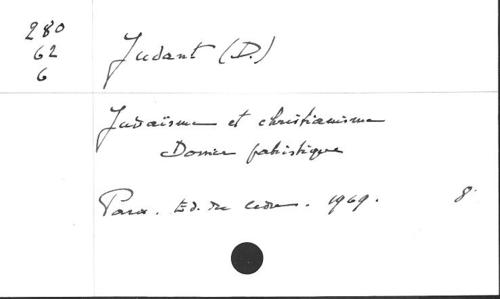 280
62
6
Judant (D.)
Judaïsme et christianisme
Dossier patristique
Paris. Ed. du Cèdre. 1969. 8°